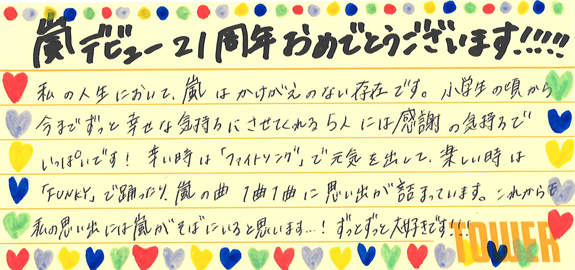 嵐デビュー21周年おめでとうございます!!!!!
私の人生において、嵐はかけがえのない存在です。小学生の頃から
今までずっと幸せな気持ちにさせてくれる5人には感謝の気持ちで
いっぱいです!辛い時は「ファイトソング」で元気を出して、楽しい時は
「FUNKY」で踊ったり、嵐の曲1曲1曲に思い出が詰まっています。これからも
私の思い出には嵐がそばにいると思います…!ずっとずっと大好きです!!!
TOWER